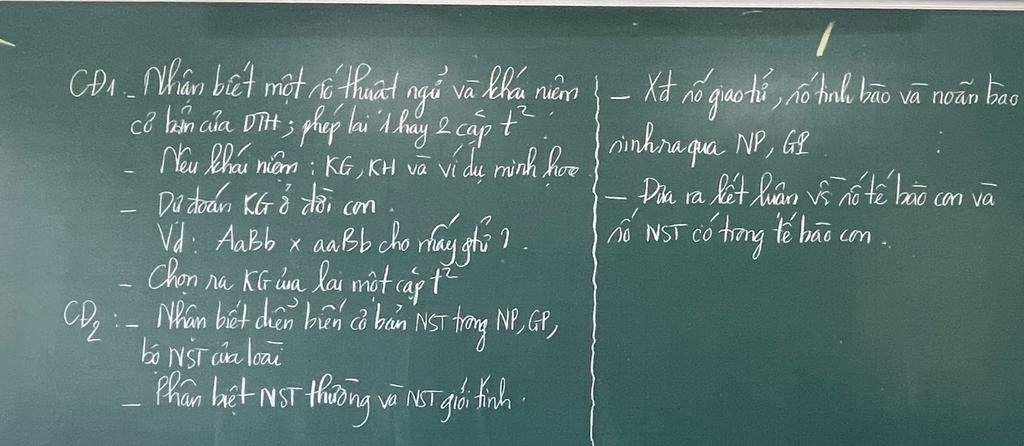 CĐ1 - Nhận biết một số thuật ngữ và khái niệm
cơ bản của DTH; phép lai 1 hay 2 cặp t²
- Nêu khái niệm : KG, KH và ví dụ minh hoạ
- Dự đoán KG ở đời con .
Vd : AaBb x aaBb cho mấy gtử ?
- Chọn ra KG của lai một cặp t²
CĐ2 : - Nhận biết diễn biến cơ bản NST trong NP, GP,
bộ NST của loài
- Phân biệt NST thường và NST giới tính .
- Xđ số giao tử, số tinh bào và noãn bào
sinh ra qua NP, GP .
- Đưa ra kết luận về số tế bào con và
số NST có trong tế bào con .